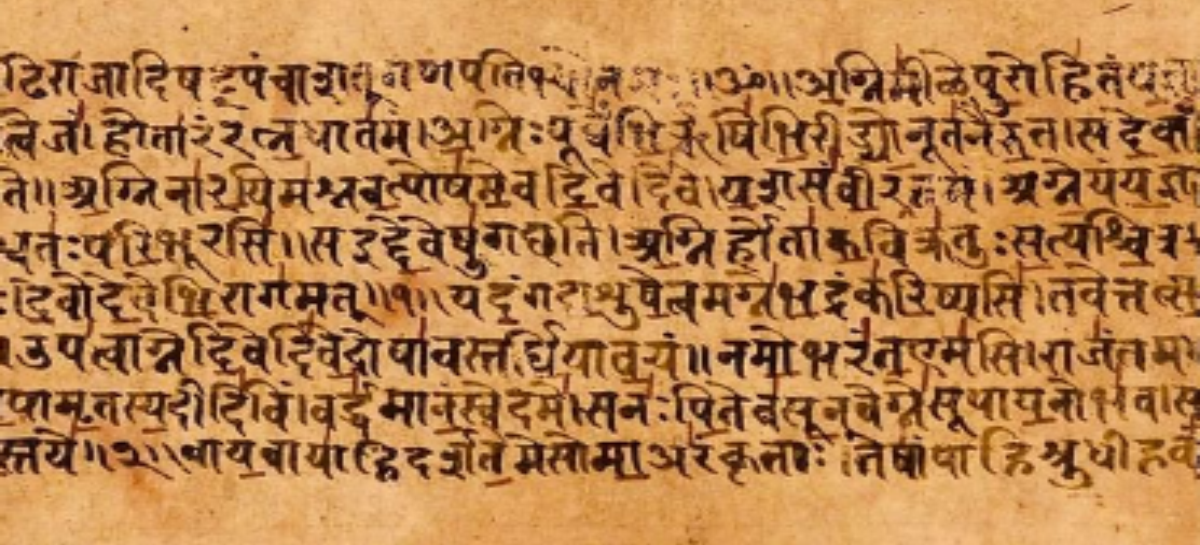 गणपति ॥ॐ॥ अग्निमीळे पुरोहितं
त्विजं। होतारं रत्नधातमं। अग्निः पूर्वेभिर्ऋषिभिरीड्यो नूतनैरुत। स देवाँ
ति॥ अग्निना रयिमश्नवत्पोषमेव दिवेदिवे। यशसं वीरवत्तमं। अग्ने यं यज्ञ
श्वतः परिभूरसि॥ स इद्देवेषु गछति। अग्निर्होता कविक्रतुः सत्यश्चित्र
देवो देवेभिरागमत्॥१॥ यदंग दाशुषे त्वमग्ने भद्रं करिष्यसि। तवेत्तत्स
उप त्वाग्ने दिवेदिवे दोषावस्तर्धिया वयं॥ नमो भरंत एमसि। राजंतम
पामृतस्य दीदिविं। वर्द्धमानं स्वे दमे। स नः पितेव सूनवेग्ने सूपायनो भव। स
स्तये॥२॥ वायवा याहि दर्शतेमे सोमा अरंकृताः। तेषां पाहि श्रुधी हवं